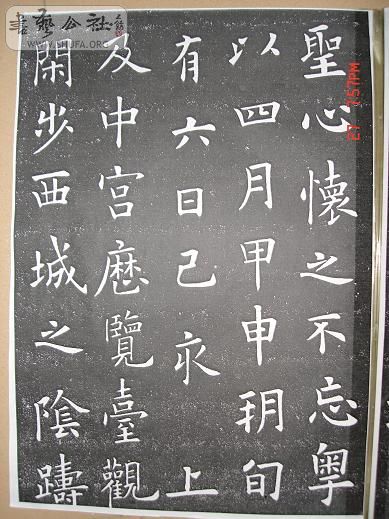 聖心懷之不忘粵
以四月甲申朔旬
有六日己亥 上
及中宮歷覽臺觀
閑步西城之陰躊
書藝公社
WWW.SHUFA.ORG